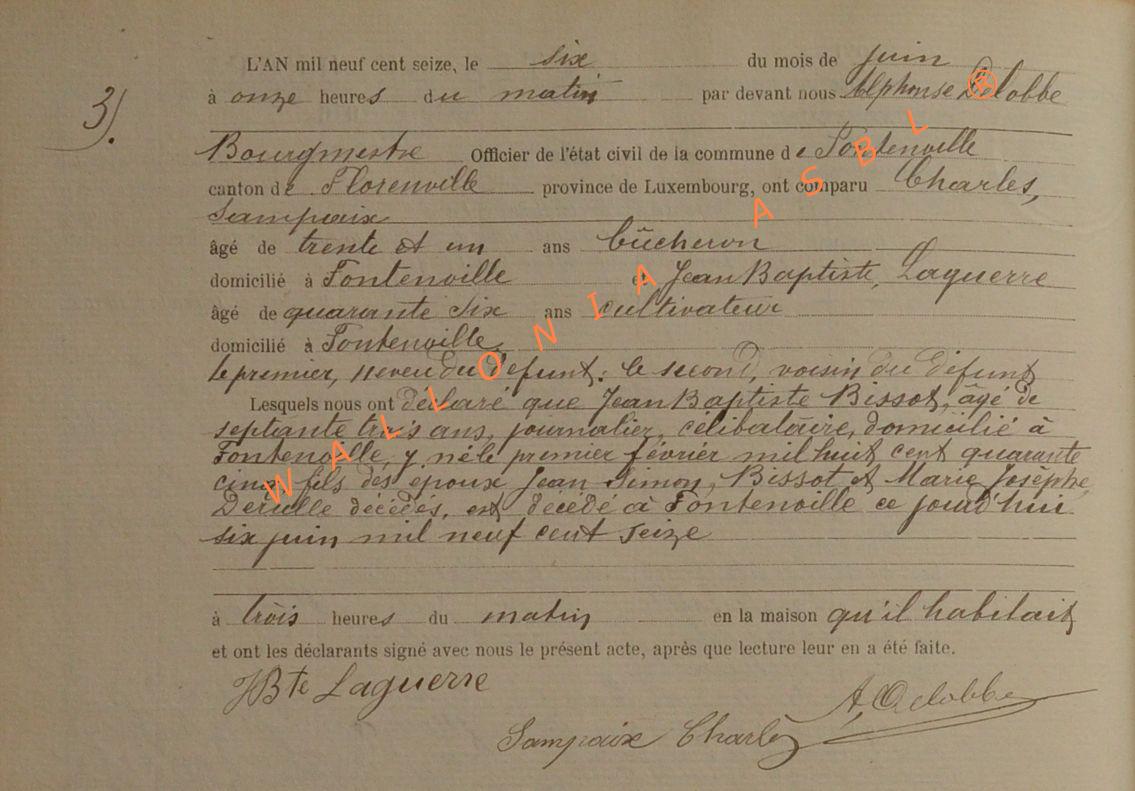 3).
L'AN mil neuf cent seize, le six du mois de juin
à onze heures du matin par devant nous Alphonse Delobbe
Bourgmestre Officier de l'état civil de la commune de Fontenoille
canton de Florenville province de Luxembourg, ont comparu Charles,
Sampaix
âgé de trente et un ans bûcheron
domicilié à Fontenoille et Jean Baptiste, Laguerre
âgé de quarante six ans cultivateur
domicilié à Fontenoille
le premier, neveu du défunt: le second, voisin du défunt
Lesquels nous ont déclaré que Jean Baptiste Bissot, âgé de
septante trois ans, journalier, célibataire, domicilié à
Fontenoille, y né le premier février mil huit cent quarante
cinq, fils des époux Jean Simon, Bissot et Marie Josèphe,
décédés, est décédé à Fontenoille ce jourd'hui
six juin mil neuf cent seize
à trois heures du matin en la maison qu'il habitait
et ont les déclarants signé avec nous le présent acte, après que lecture leur en a été faite.
JBte Laguerre
A, Delobbe
Sampaix Charles
WALLONIA ASBL ®